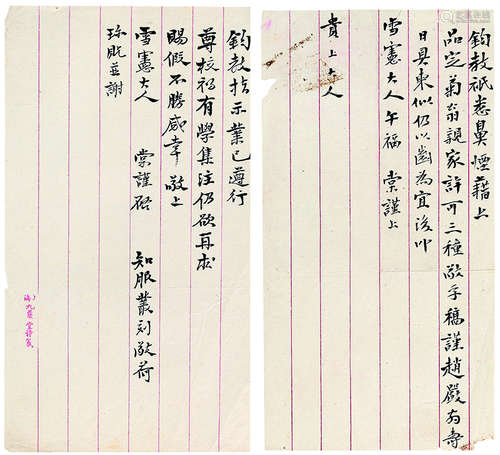 鈞教祇悉鼻煙藉上
品定菊翁親家許可三種敬孚稿謹趙嚴前壽
日具柬似仍以齒為宜後叩
雪憲大人午福 棠謹上
貴上大人
鈞教指示業已遵行
尊校初有學集注仍欲再求
賜假不勝感幸敬上
雪憲大人 棠謹啓 知服叢刻敬荷
珍貺並謝